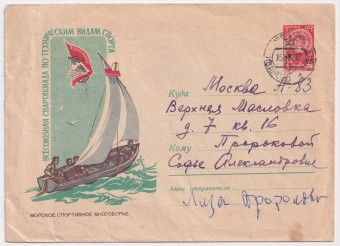 ВСЕСОЮЗНАЯ СПАРТАКИАДА ПО ТЕХНИЧЕСКИМ ВИДАМ СПОРТА
МОРСКОЕ СПОРТИВНОЕ МНОГОБОРЬЕ
Куда Москва А-83
Верхняя Масловка
д. 7 кв. 16
Кому Пророковой
Софье Александровне
Адрес отправителя
Лиза